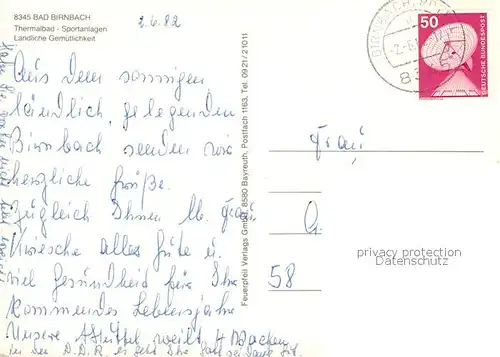 8345 BAD BIRNBACH
Thermalbad - Sportanlagen
Ländliche Gemütlichkeit
2.6.82
Aus dem sonnigen
ländlich, gelegenden
Birnbach senden wir
herzliche Grüße.
Zugleich Ihnen lb. Frau
alles Gute u.
viel Gesundheit für Ihr
kommendes Lebensjahr
Unsere weilt 4 Wochen
in der D.D.R. es geht Ihr Gott sei Dank gut.
Feuerpfeil Verlags GmbH, 8580 Bayreuth, Postfach 1163, Tel. 09 21 / 2 10 11
50
DEUTSCHE BUNDESPOST
BIRNBACH
Frau
G.
58
privacy protection
Datenschutz